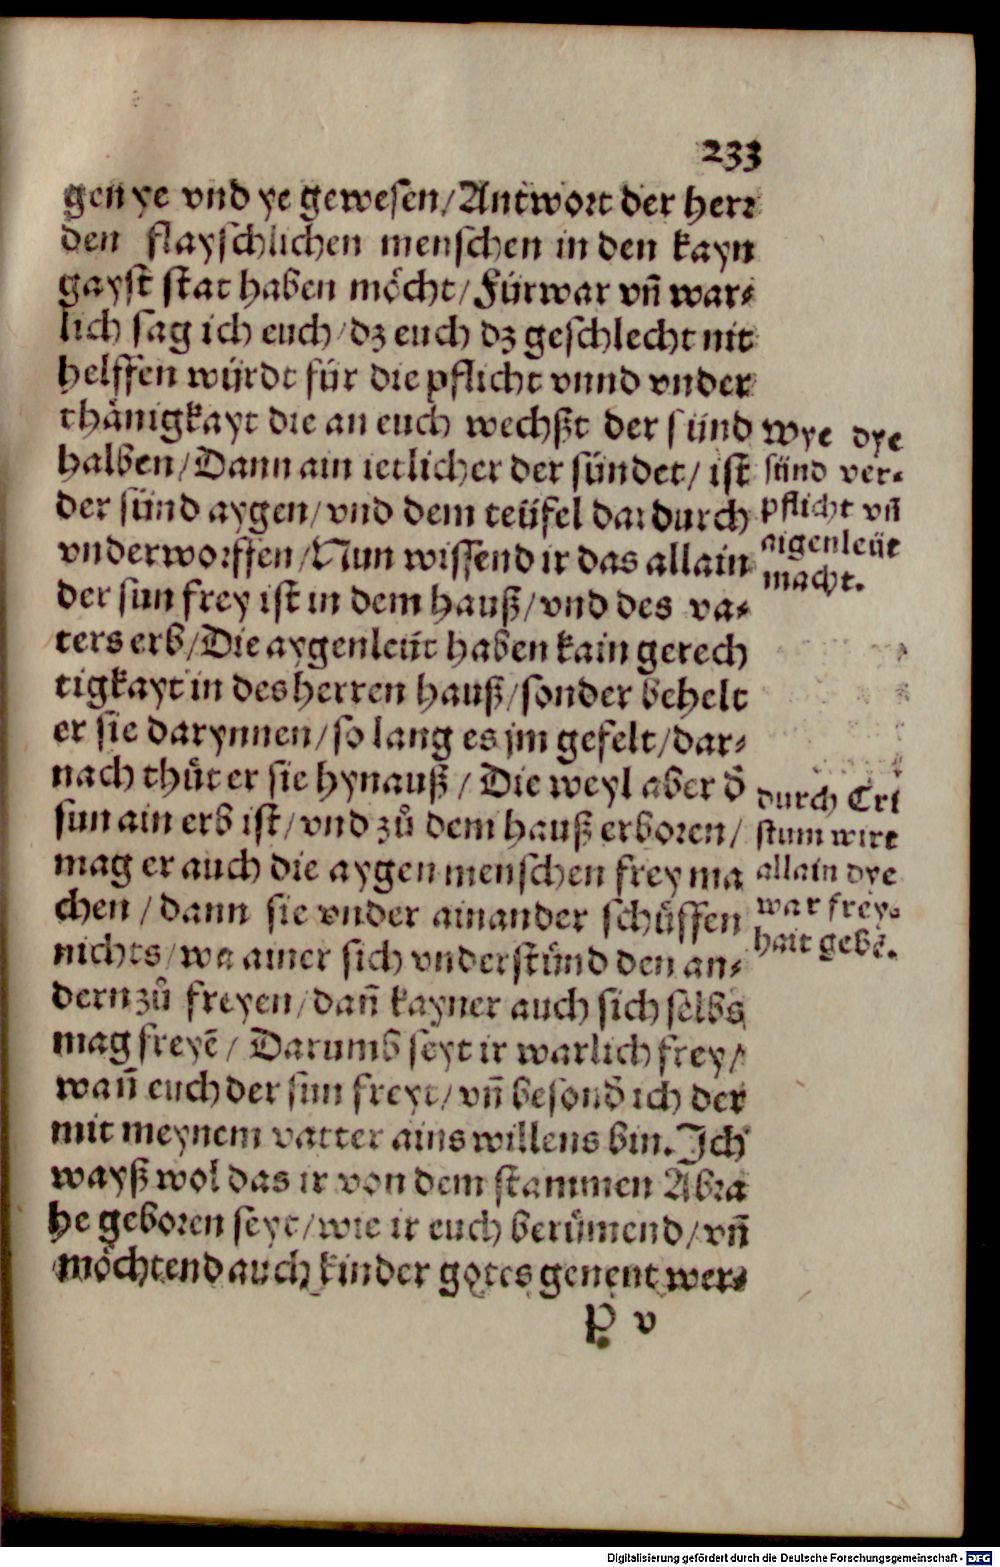 233
gen ye vnd ye gewesen/Antwort der herr
den flayschlichen menschen in den kayn
gayst stat haben möcht/Fürwar vñ war⸗
lich sag ich euch/dz euch dz geschlecht nit
helffen würdt für die pflicht vnnd vnder
thänigkayt die an euch wechßt der sünd
halben/Dann ain ietlicher der sündet/ist
der sünd aygen/vnd dem teüfel dardurch
vnderworffen/Nun wissend ir das allain
der sun frey ist in dem hauß/vnd des va⸗
ters erb/Die aygenleüt haben kain gerech
tigkayt in des herren hauß/sonder behelt
er sie darynnen/so lang es jm gefelt/dar⸗
nach thůt er sie hynauß/Die weyl aber d̄
sun ain erb ist/vnd zů dem hauß erboren/
mag er auch die aygen menschen frey ma
chen/dann sie vnder ainander schůffen
nichts/wa ainer sich vnderstůnd den an⸗
dern zů freyen/dañ kayner auch sich selbs
mag freyē/Darumb seyt ir warlich frey/
wañ euch der sun freyt/vñ besond̄ ich der
mit meynem vatter ains willens bin. Jch
wayß wol das ir von dem stammen Abra
he geboren seyt/wie ir euch berůmend/vñ
möchtend auch kinder gotes genent wer⸗
P v
wye dye
sünd ver⸗
pflicht vñ
aigenleüt
macht.
durch Cri
stum wirt
allain dye
war frey⸗
hait gebē.
Digitalisierung gefördert durch die Deutsche Forschungsgemeinschaft - DFG